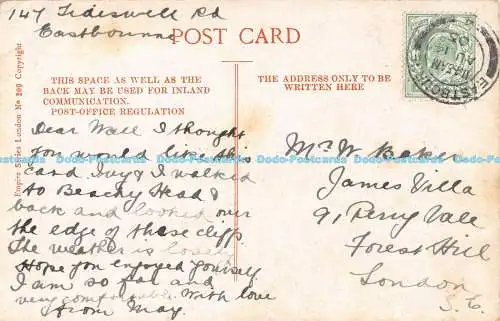 147 Tideswell Rd
Eastbourne
POST CARD
THIS SPACE AS WELL AS THE
BACK MAY BE USED FOR INLAND
COMMUNICATION.
POST-OFFICE REGULATION
THE ADDRESS ONLY TO BE
WRITTEN HERE
Empire Series London No 209 Copyright
Dear Wall I thought
you would like this
card Ivy & I walked
to Beachy Head &
back and looked over
the edge of these cliffs
The weather is lovely
Hope you enjoyed yourself
I am so far and
very comfortable. With love
from May.
Mr W Baker
James Villa
91 Perry Vale
Forest Hill
London
S.E.
EASTBOURNE
AU
05